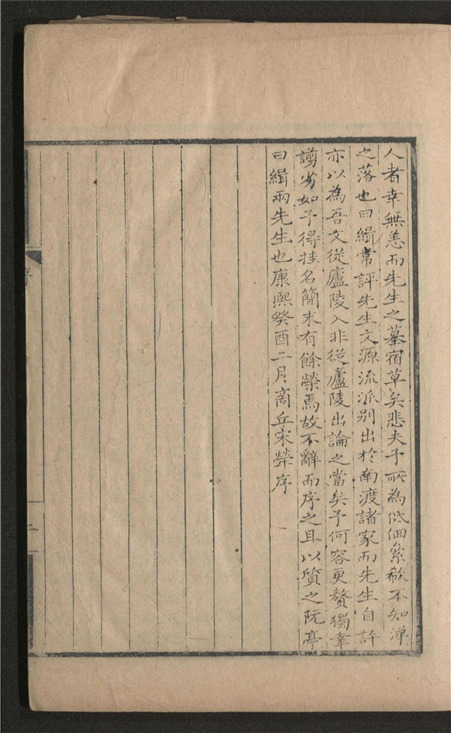 人者幸無恙而先生之墓宿草矣悲夫予所為低佪絫欷不知涕
之落也曰緝常評先生文源流派别出於南渡諸家而先生自許
亦以為吾文從廬陵入非從廬陵出論之當矣予何容更贅獨幸
謭劣如予得挂名簡末有餘榮焉故不辭而序之且以質之阮亭
曰緝兩先生也康熙癸酉二月商丘宋犖序
序
二